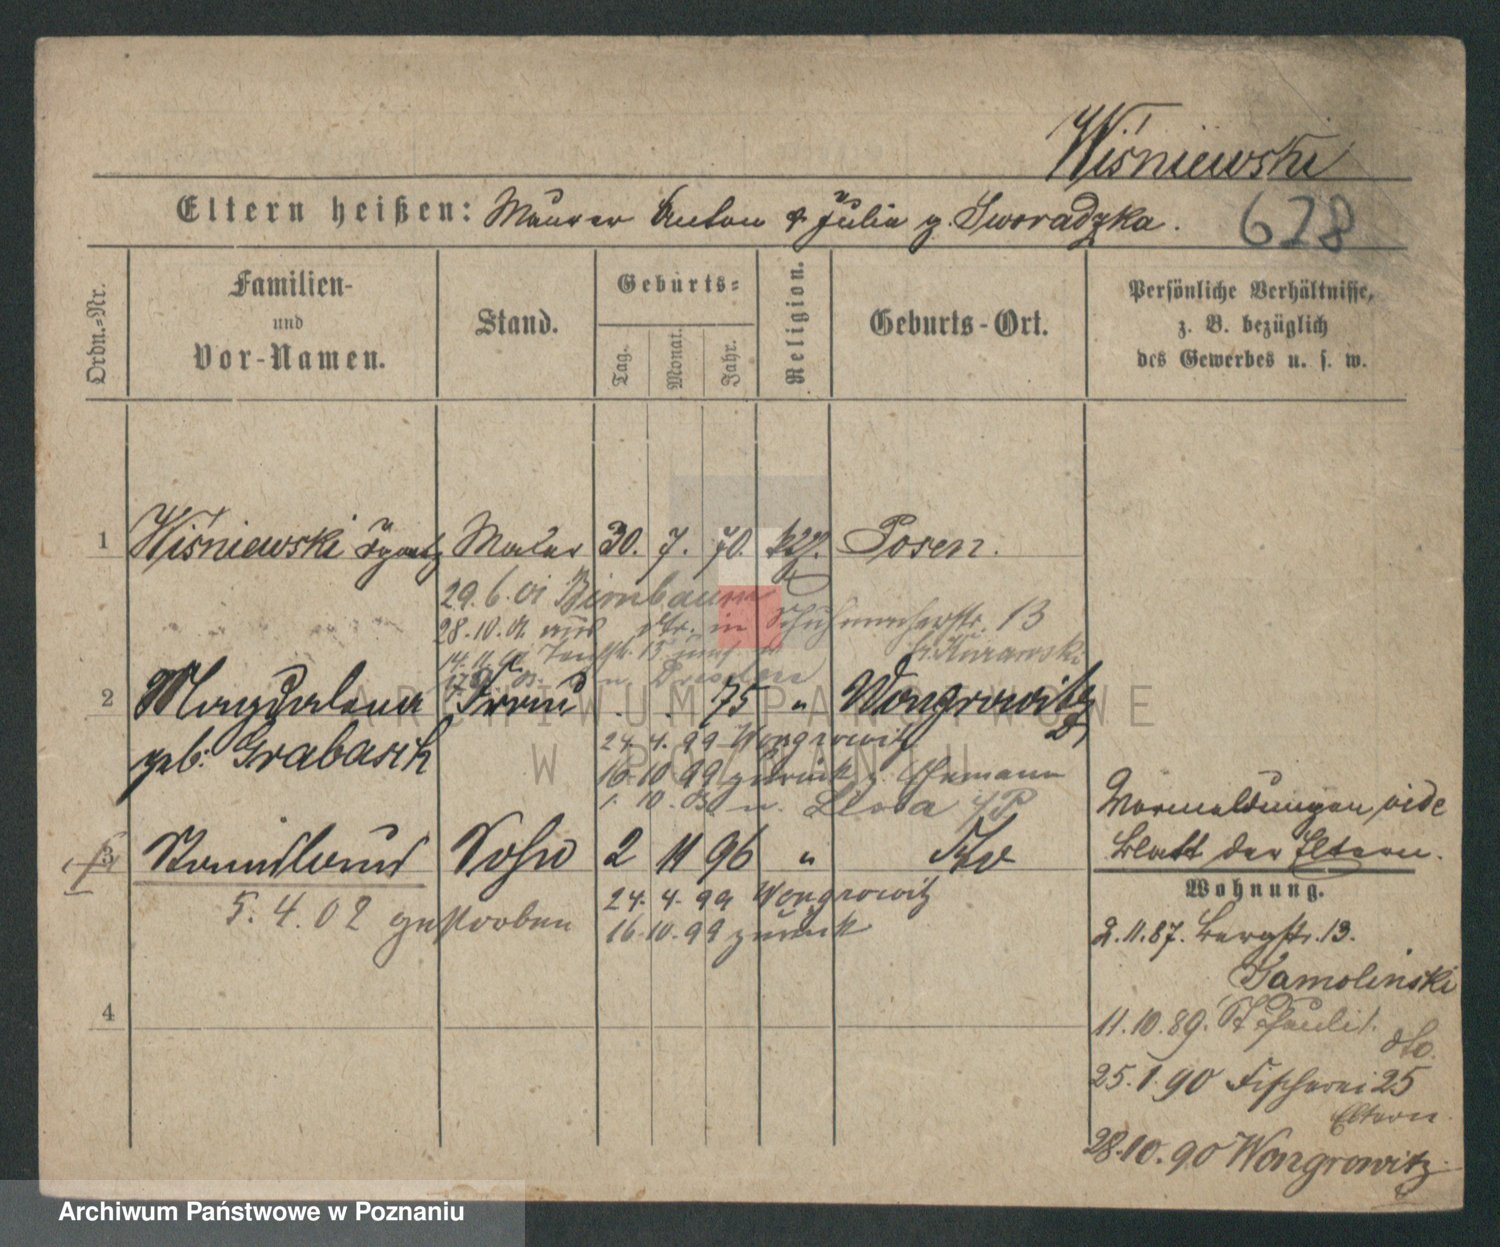 Wiśniewski
Eltern heißen: Maurer Anton & Julia g. Sworadzka.
628
Ordn.-Nr.
Familien-
und
Vor-Namen.
Stand.
Geburts-
Tag.
Monat.
Jahr.
Religion.
Geburts-Ort.
Persönliche Verhältnisse,
z. B. bezüglich
des Gewerbes u. s. w.
1 Wiśniewski Ignatz Maler 30. 7. 70. Posen.
29.6.01 Birnbaum
28.10.01 aus in Schuhmacherstr. 13
b. Kurawski
14.11. 13
n. Dresden
2 Magdalena Frau . . 75 " Wongrowitz
geb. Grabasch
24.4.99 Wongrowitz
16.10.99 zurück z. Ehemann
1.10. n.
3 Stanislaus Sohn 2 11 96 "
5.4.02 gestorben
24.4.99 Wongrowitz
16.10.99 zurück
4
Vormeldungen vide
Blatt der Eltern.
Wohnung.
2.11.87. Bergstr. 13.
Jamolinski
11.10.89. St Pauli
dto.
25.1.90 Fischerei 25
Eltern
28.10.90 Wongrowitz
ARCHIWUM PAŃSTWOWE
W POZNANIU
Archiwum Państwowe w Poznaniu